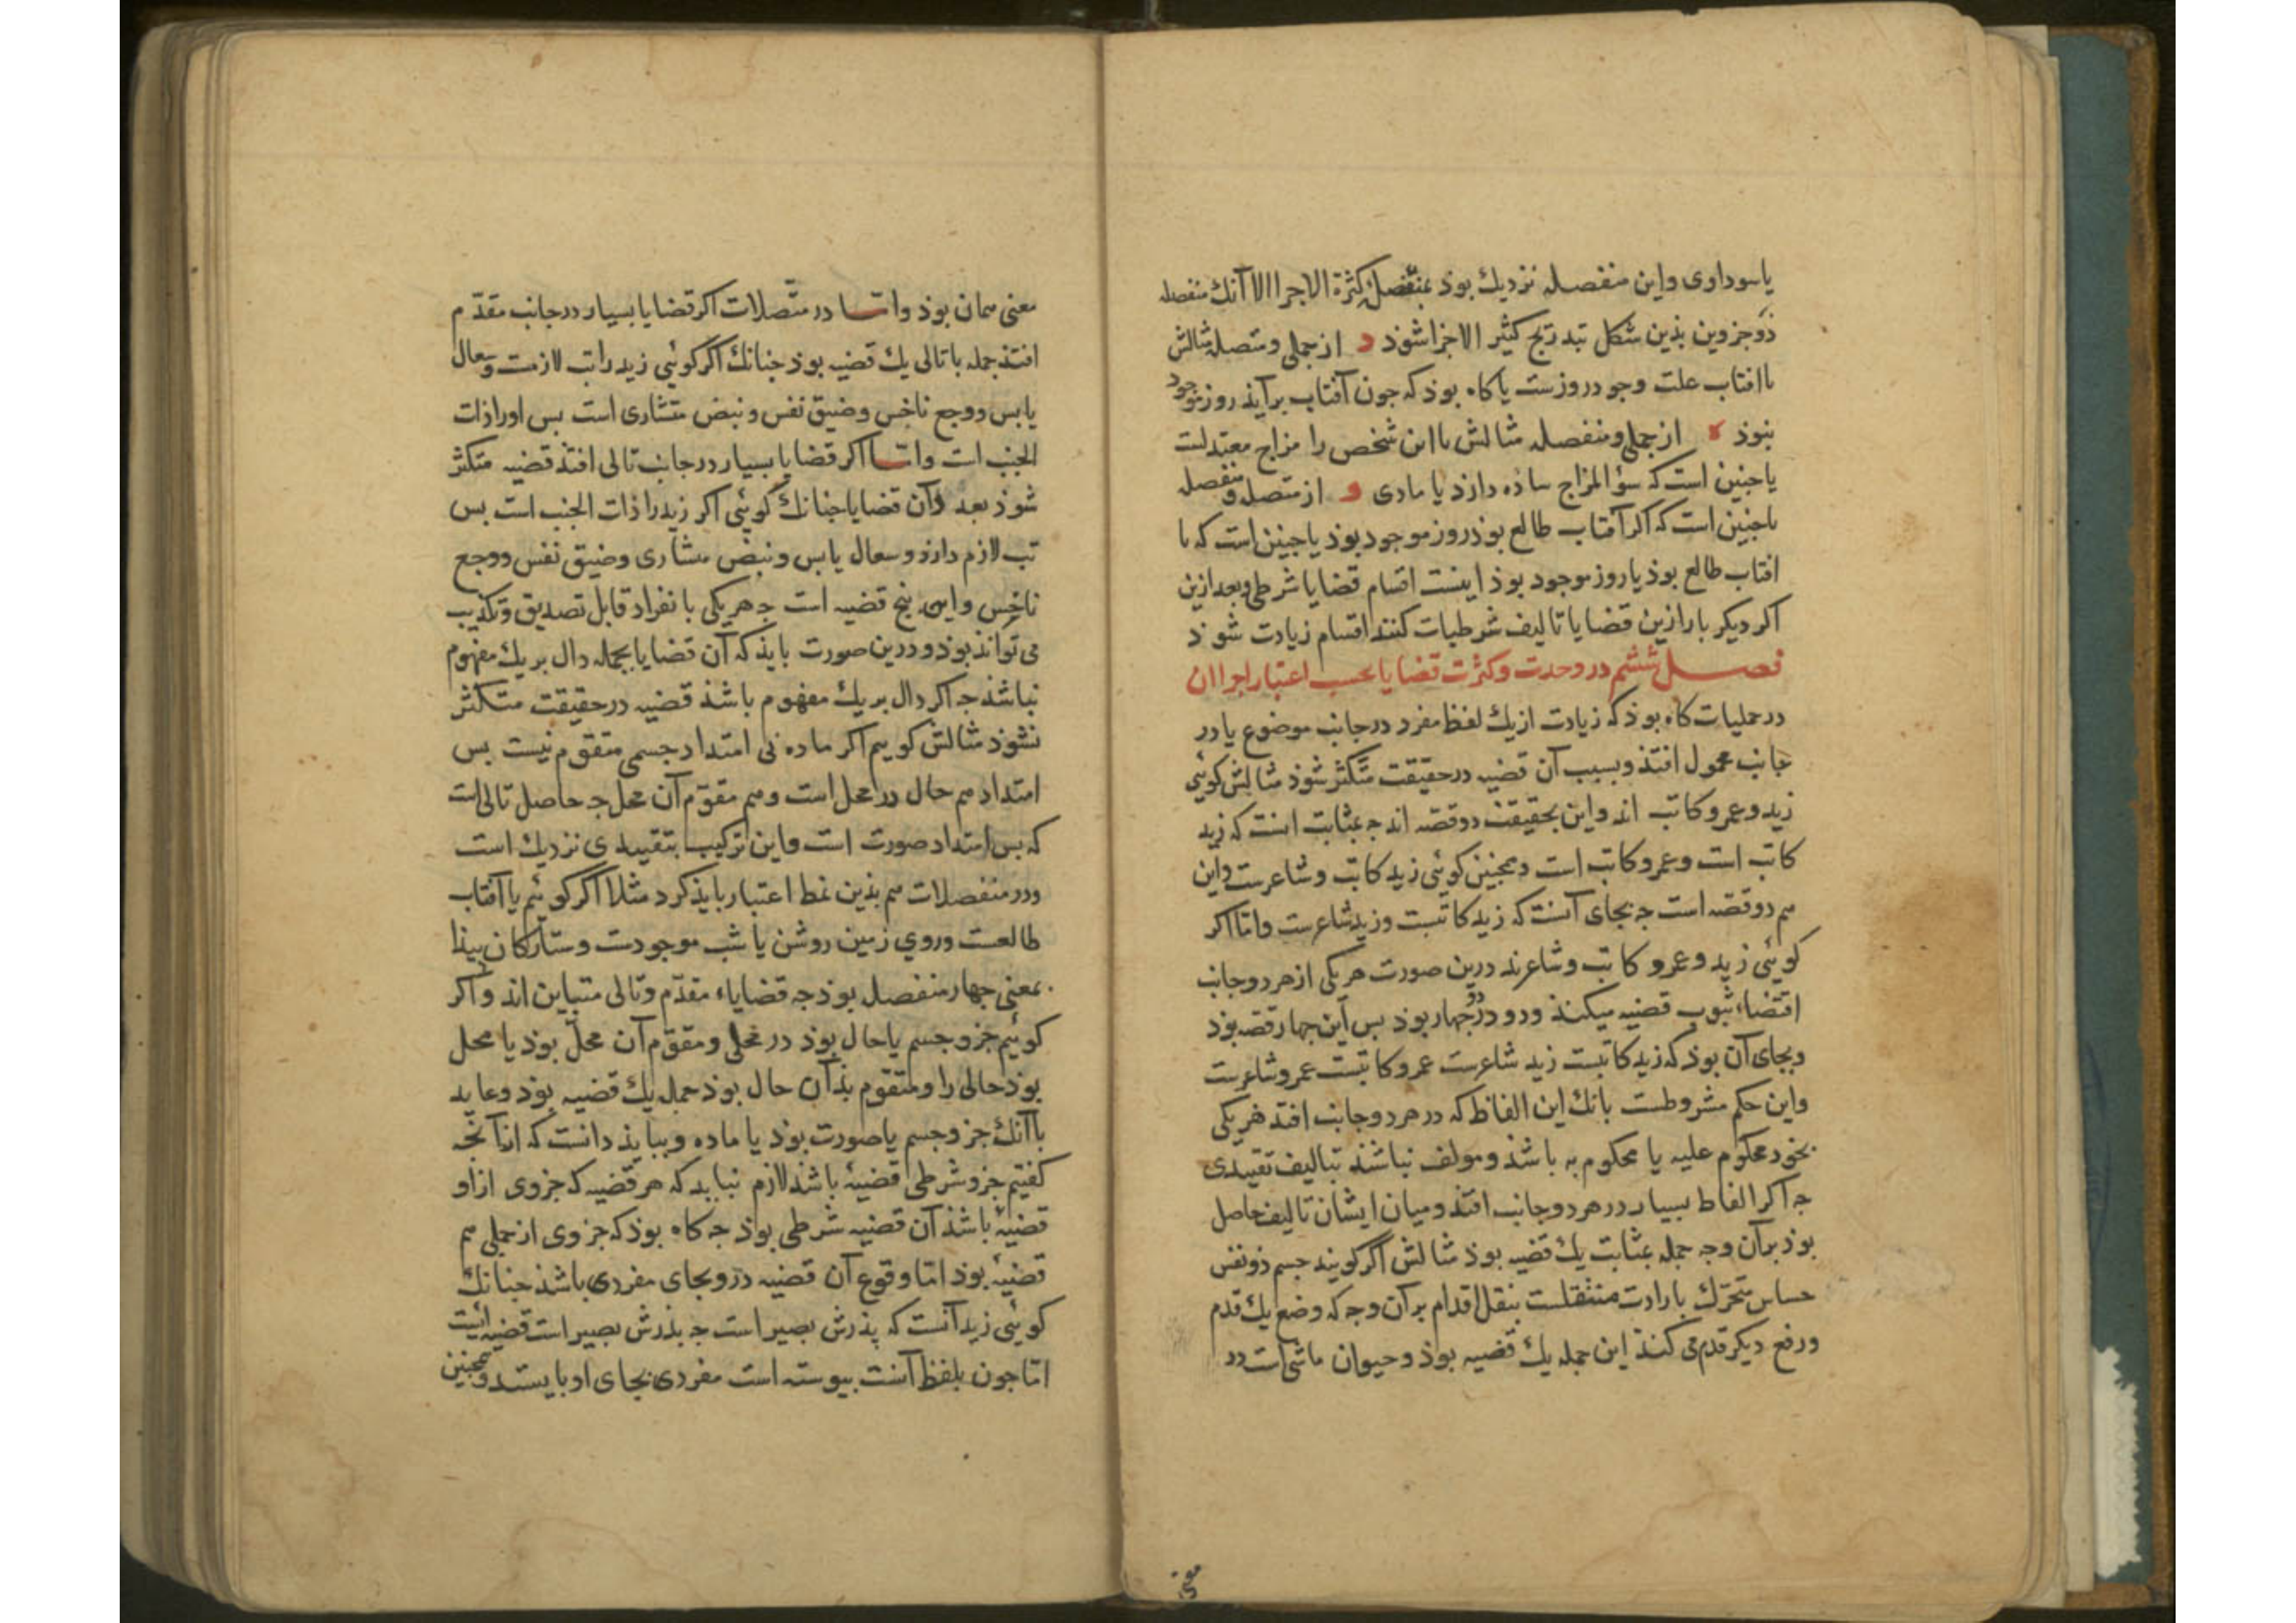 یا سوداوی و این منفصله نزدیک بوذ بمنفصل کثرة الاجزا الا آنک منفصله
ذو جزوین بذین شکل تبدریج کثیر الاجزا شوذ د از حملی و متصله مثالش
یا افتاب علت وجود روزست یا کاه بوذ که جون آفتاب برآید روز موجود
بنوذ ه از حملی و منفصله مثالش یا این شخص را مزاج معتدلست
یا جنین است که سؤ المزاج ساذه دارذ یا مادی و از متصل و منفصل
یا جنین است که اکر آفتاب طالع بوذ روز موجود بوذ یا جنین است که یا
افتاب طالع بوذ یا روز موجود بوذ اینست اقسام قضایا شرطی و بعد ازین
اکر دیکر بار ازین قضایا تالیف شرطیات کنند اقسام زیادت شوذ
فصل ششم در وحدت و کثرت قضایا بحسب اعتبار اجزا ان
در حملیات کاه بوذ که زیادت از یک لفظ مفرد در جانب موضوع یا در
جانب محمول افتذ و بسبب آن قضیه در حقیقت متکثر شوذ مثالش کوئی
زید و عمرو کاتب اند و این بحقیقت دو قصه اند جه بمثابت انست که زید
کاتب است و عمرو کاتب است و همجنین کوئی زید کاتب و شاعرست و این
هم دو قصه است جه بجای آنست که زید کاتبست و زید شاعرست و اما اکر
کوئی زید و عمرو کاتب و شاعرند درین صورت هر یکی از هر دو جانب
اقتضاء ثبوب قضیه میکنذ و دو در دو جهار بوذ بس این جهار قصه بوذ
و بجای آن بوذ که زید کاتبست زید شاعرست عمرو کاتبست عمرو شاعرست
و این حکم مشروطست بانک این الفاظ که در هر دو جانب افتد هر یکی
بخود محکوم علیه یا محکوم به باشذ و مولف نباشذ بتالیف تقییدی
جه اکر الفاظ بسیار در هر دو جانب افتذ و میان ایشان تالیف حاصل
بوذ بر آن وجه جمله بمثابت یک قضیه بوذ مثالش اکر کویند جسم ذو نفس
حساس متحرک بارادت منتقلست بنقل اقدام بر آن وجه که وضع یک قدم
و رفع دیکر قدم می کند این جمله یک قضیه بوذ و حیوان ماشی است در
معنی
معنی همان بوذ و اما در متصلات اکر قضایا بسیار در جانب مقدم
افتذ جمله با تالی یک قضیه بوذ جنانک اکر کوئی زید را تب لازمست و سعال
یابس و وجع ناخس و ضیق نفس و نبض منشاری است بس او را ذات
الجنب است و اما اکر قضایا بسیار در جانب تالی افتذ قضیه متکثر
شوذ بعدد آن قضایا جنانک کوئی اکر زید را ذات الجنب است بس
تب لازم دارذ و سعال یابس و نبض منشاری و ضیق نفس و وجع
ناخس و این بنج قضیه است جه هر یکی بانفراد قابل تصدیق و تکذیب
می تواند بوذ و درین صورت بایذ که آن قضایا بجمله دال بر یک مفهوم
نباشذ جه اکر دال بر یک مفهوم باشذ قضیه در حقیقت متکثر
نشوذ مثالش کویم اکر ماده بی امتداد جسمی متقوم نیست بس
امتداد هم حال در محل است و هم مقوم آن محل جه حاصل تالی است
که بس امتداد صورت است و این ترکیب بتقییدی نزدیک است
و در منفصلات هم بذین نمط اعتبار بایذ کرد مثلا اکر کوئیم یا آفتاب
طالعست و روی زمین روشن یا شب موجودست و ستارکان بیذا
بمعنی جهار منفصل بوذ جه قضایاء مقدم و تالی متباین اند و اکر
کوئیم جزو جسم یا حال بوذ در محلی و مقوم آن محل بوذ یا محل
بوذ حالی را و متقوم بذان حال بوذ جمله یک قضیه بوذ و عاید
با آنک جزو جسم یا صورت بوذ یا ماده و ببایذ دانست که از آنجه
کفتیم جزو شرطی قضیهٔ باشذ لازم نیاید که هر قضیه که جزوی از او
قضیهٔ باشذ آن قضیه شرطی بوذ جه کاه بوذ که جزوی از حملی هم
قضیهٔ بوذ اما وقوع آن قضیه درو بجای مفردی باشذ جنانک
کوئی زید آنست که بذرش بصیر است جه بذرش بصیر است قضیه ایست
اما جون بلفظ آنست بیوسته است مفردی بجای او بایستد و همجنین